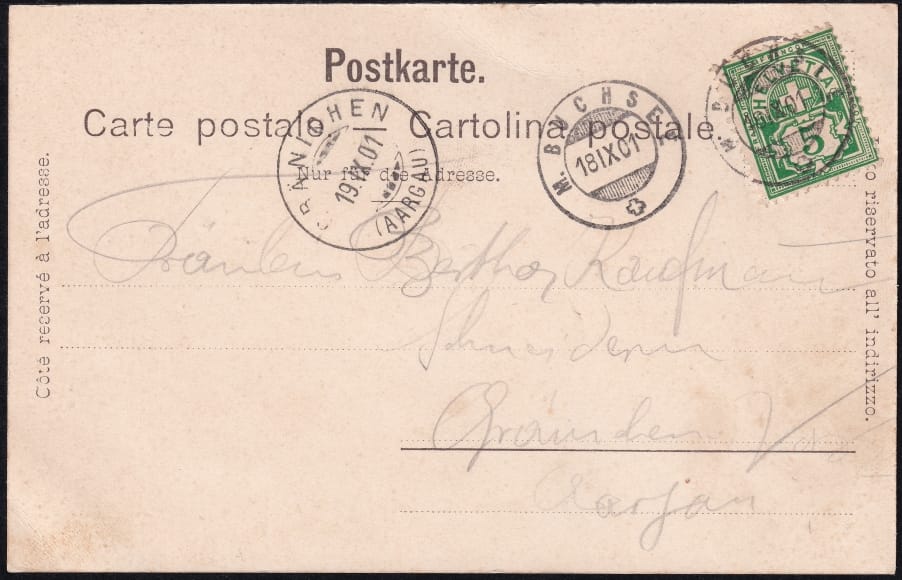 Postkarte.
Carte postale — Cartolina postale.
Nur für die Adresse.
GRÄNICHEN
19.IX.01
(AARGAU)
M. BUCHSEE
18 IX 01
HELVETIA
5
Côté recervé à l'adresse.
riservato all' indirizzo.
Fräulein Bertha Kaufmann
Schneiderin
Gränichen
Aargau